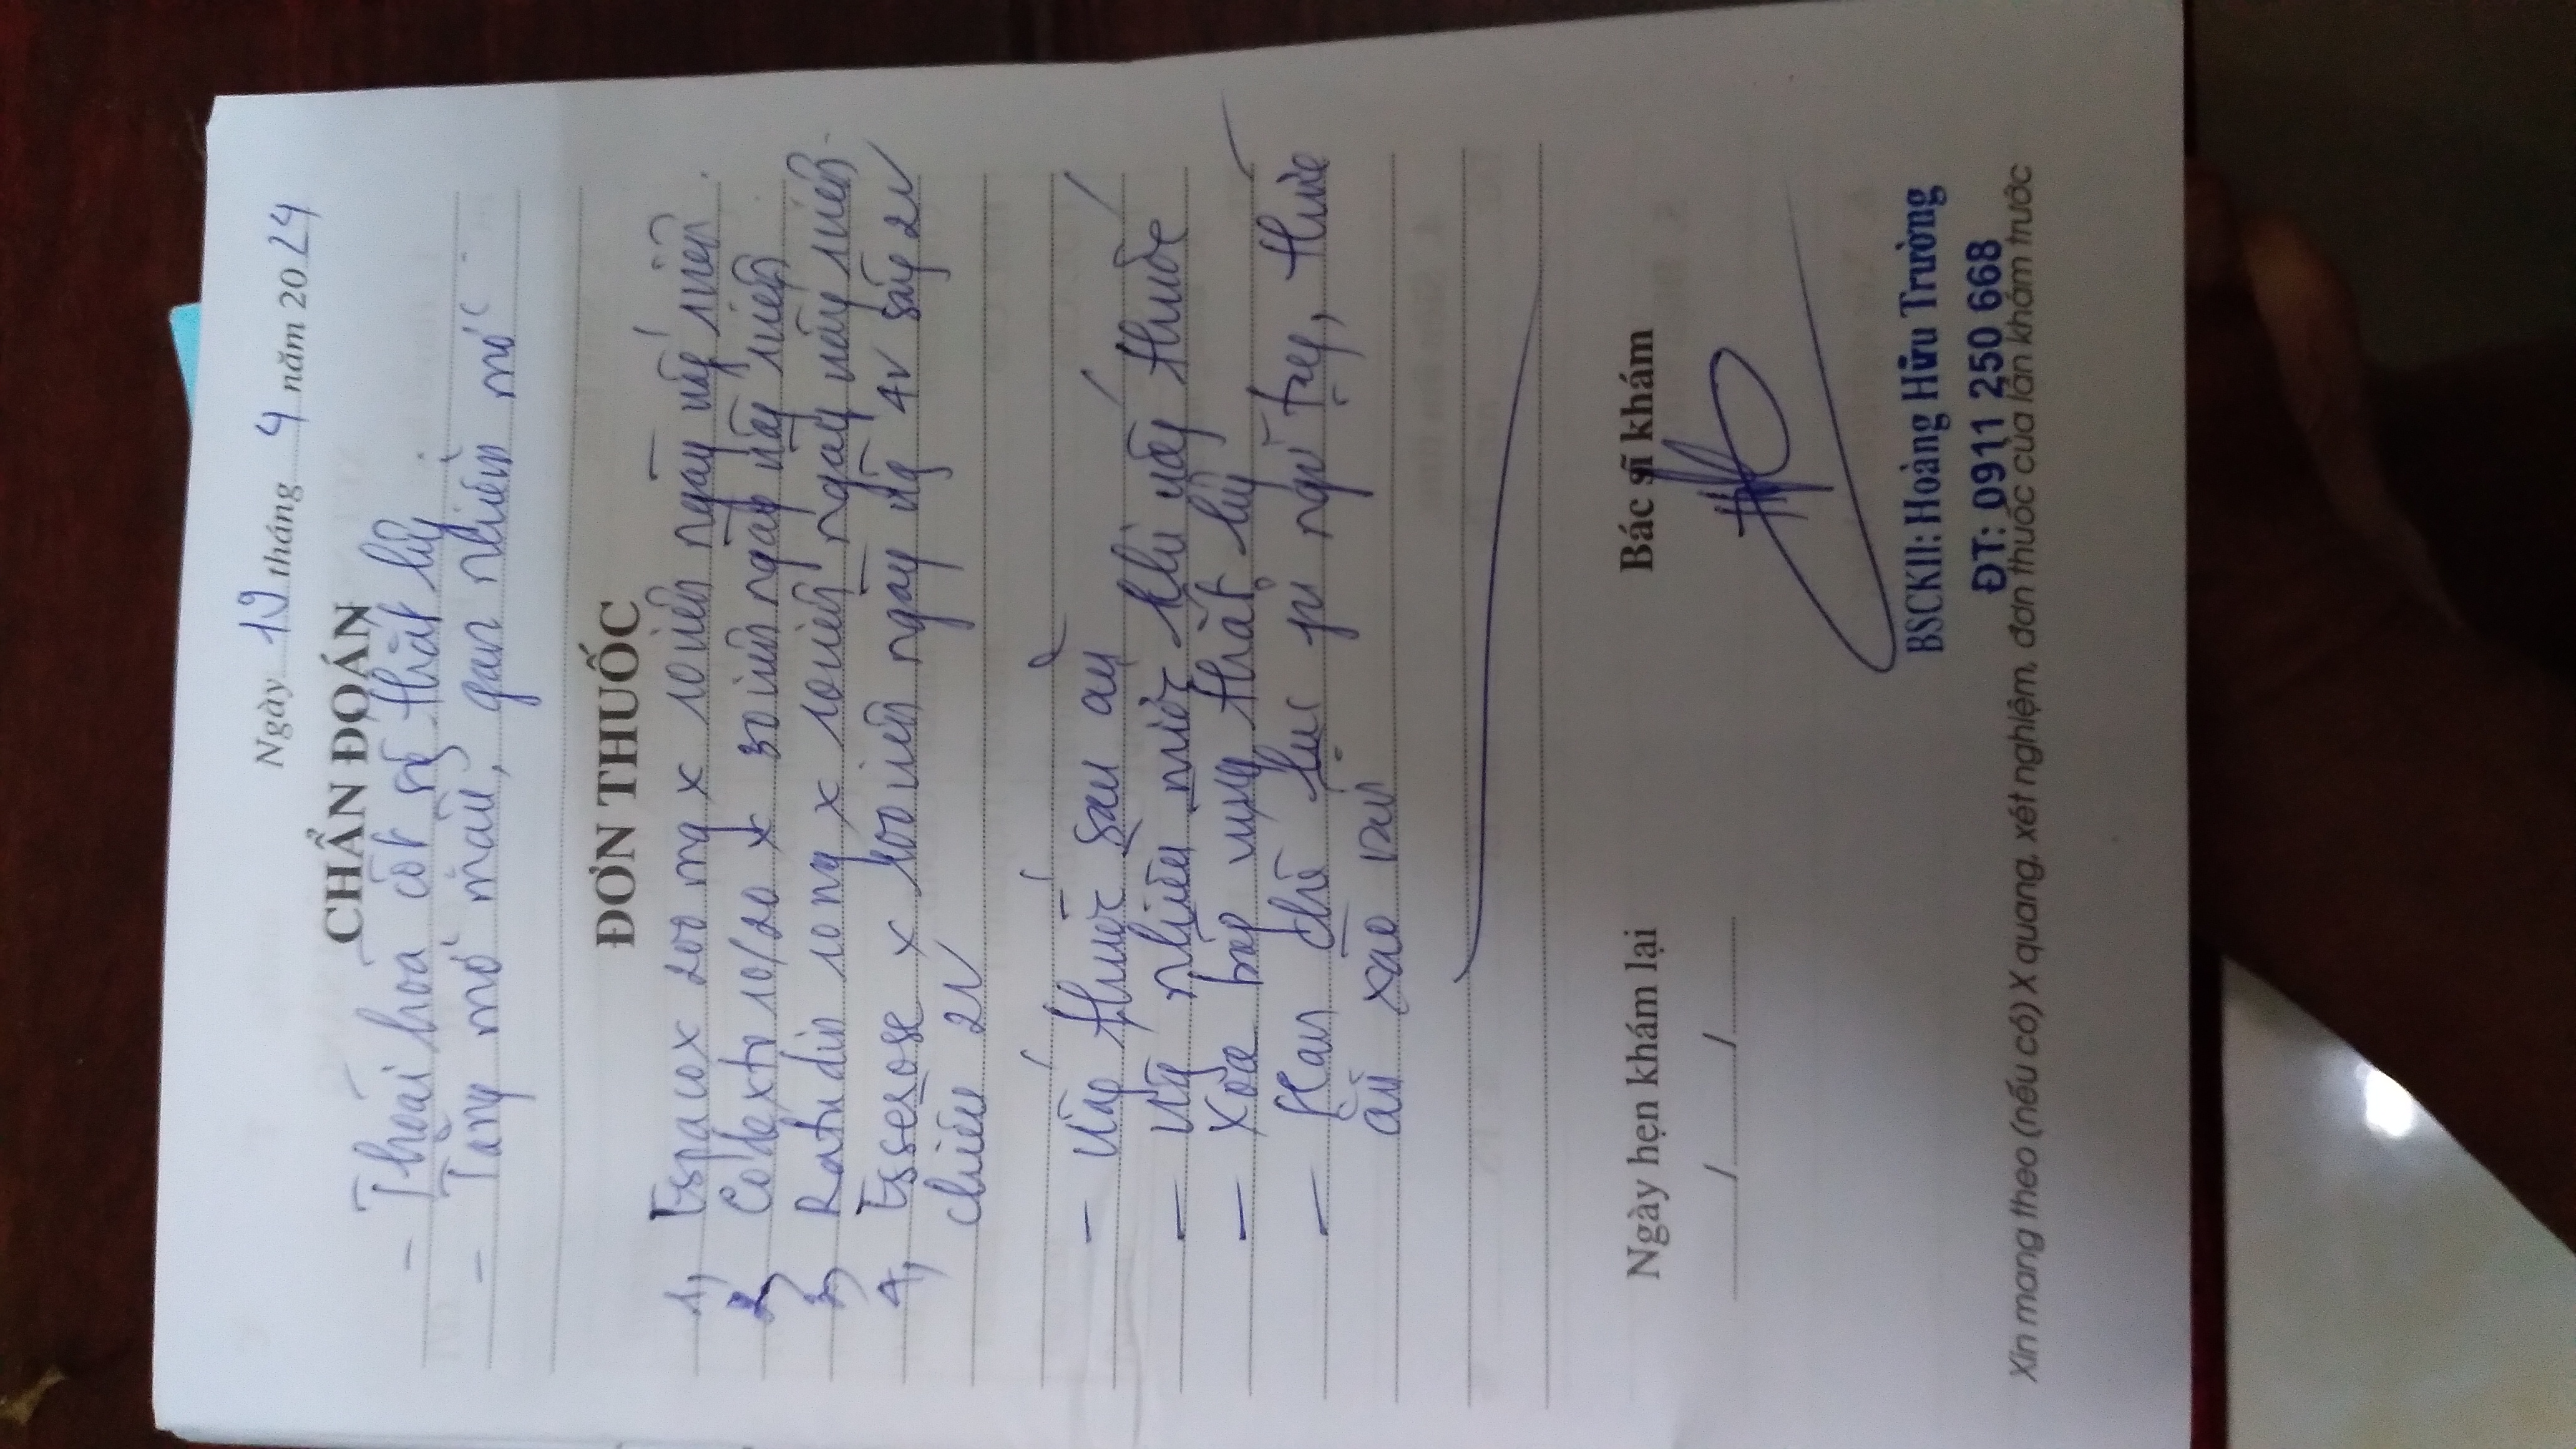 Ngày 19 tháng 4 năm 2024
CHẨN ĐOÁN
- Thoái hóa cột sống thắt lưng
- Tăng mỡ máu, gan nhiễm mỡ
ĐƠN THUỐC
1, Espacox 200 mg x 10 viên ngày uống viên
2, x 30 viên ngày uống viên
3, 10 mg x 10 viên ngày uống viên
4, x 100 viên ngày uống 4v sáng 2v
chiều 2v
- Uống thuốc sau ăn
- Uống nhiều nước khi uống thuốc
- Xoa bóp vùng thắt lưng
- Hạn chế thức
ăn xào rán
Ngày hẹn khám lại
Bác sĩ khám
/ /
BSCKII: Hoàng Hữu Trường
ĐT: 0911 250 668
Xin mang theo (nếu có) X quang, xét nghiệm, đơn thuốc của lần khám trước